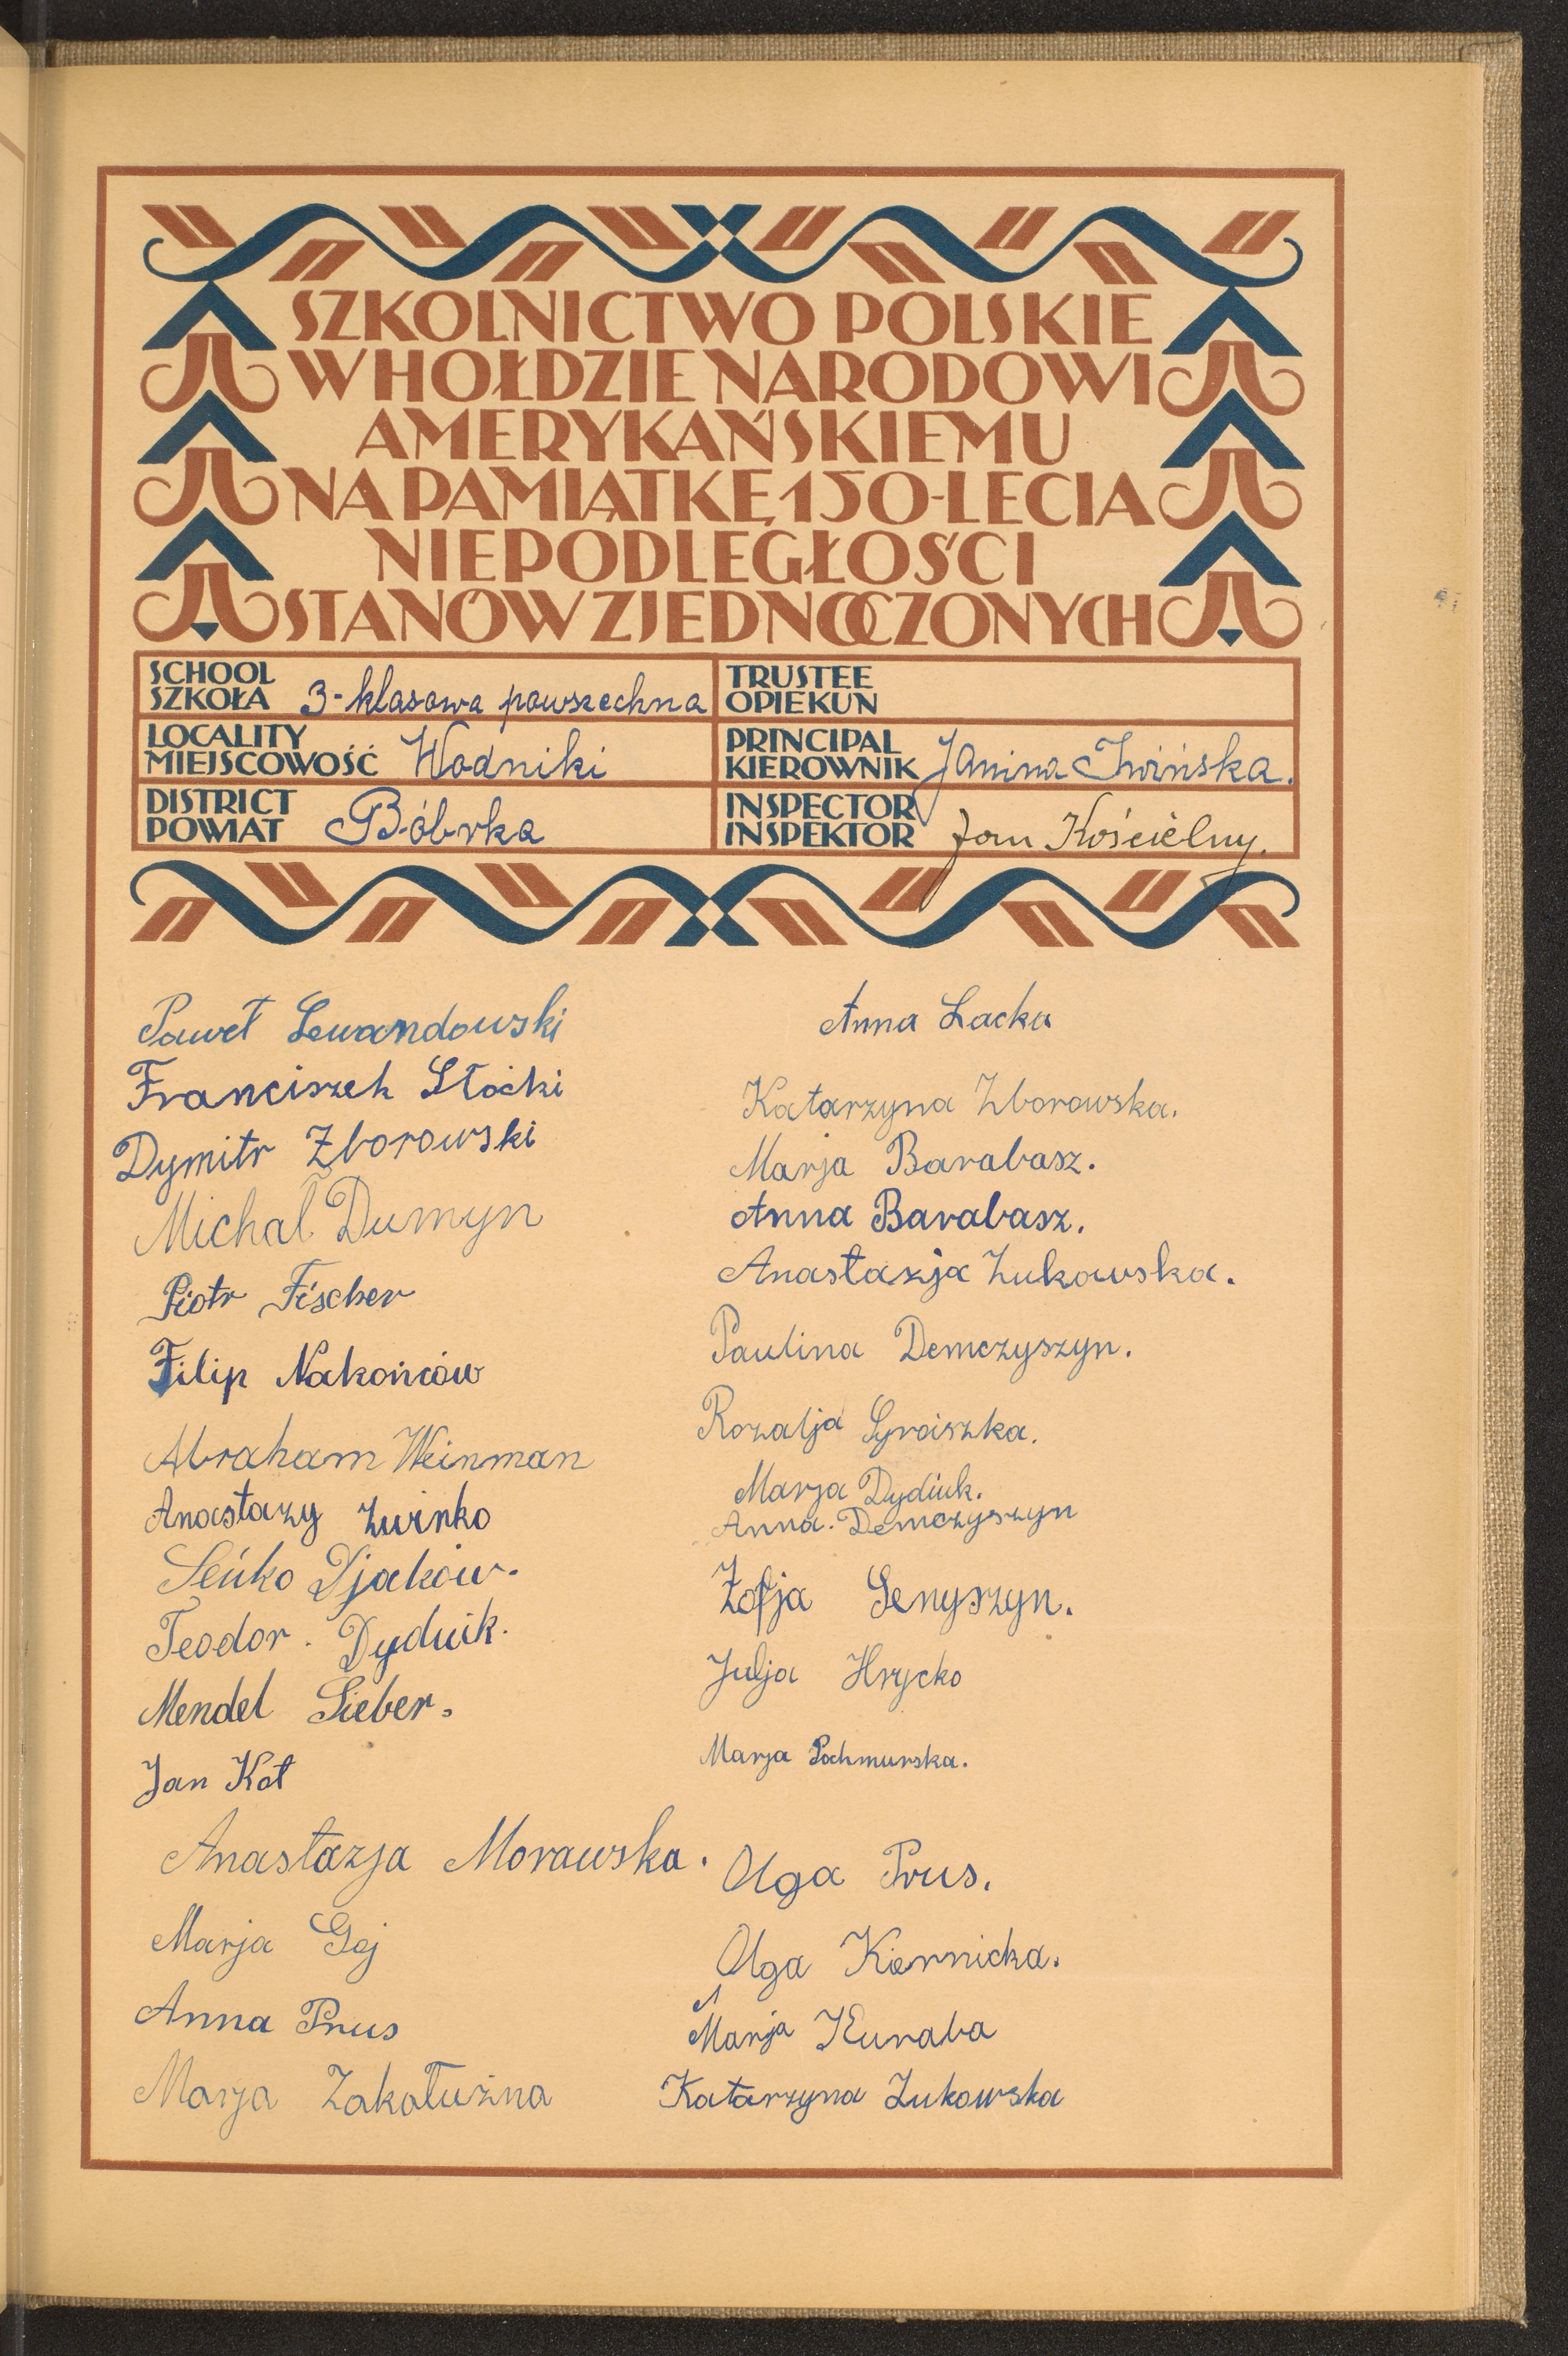 SZKOLNICTWO POLSKIE
W HOŁDZIE NARODOWI
AMERYKAŃSKIEMU
NA PAMIĄTKĘ 150-LECIA
NIEPODLEGŁOŚCI
STANÓW ZJEDNOCZONYCH
SCHOOL
SZKOŁA 3-klasowa powszechna
LOCALITY
MIEJSCOWOŚĆ Wodniki
DISTRICT
POWIAT Bóbrka
TRUSTEE
OPIEKUN
PRINCIPAL
KIEROWNIK Janina
INSPECTOR
INSPEKTOR Jan Kościelny.
Paweł Lewandowski
Franciszek Słocki
Dymitr Zborowski
Michał Dumyn
Piotr Fischer
Filip Nakońców
Abraham Weinman
Anastazy Zwinko
Seńko Djaków.
Teodor. Dydiuk.
Mendel Sieber.
Jan Kot
Anastazja Morawska.
Marja Gaj
Anna Prus
Marja Zakałużna
Anna Łacka
Katarzyna Zborowska.
Marja Barabasz.
Anna Barabasz.
Anastazja Żukowska.
Paulina Demczyszyn.
Rozalja
Marja Dydiuk.
Anna. Demczyszyn
Zofja Senyszyn.
Julja Hrycko
Marja Pochmurska.
Olga Prus.
Olga Kiernicka.
Marja Kuraba
Katarzyna Żukowska